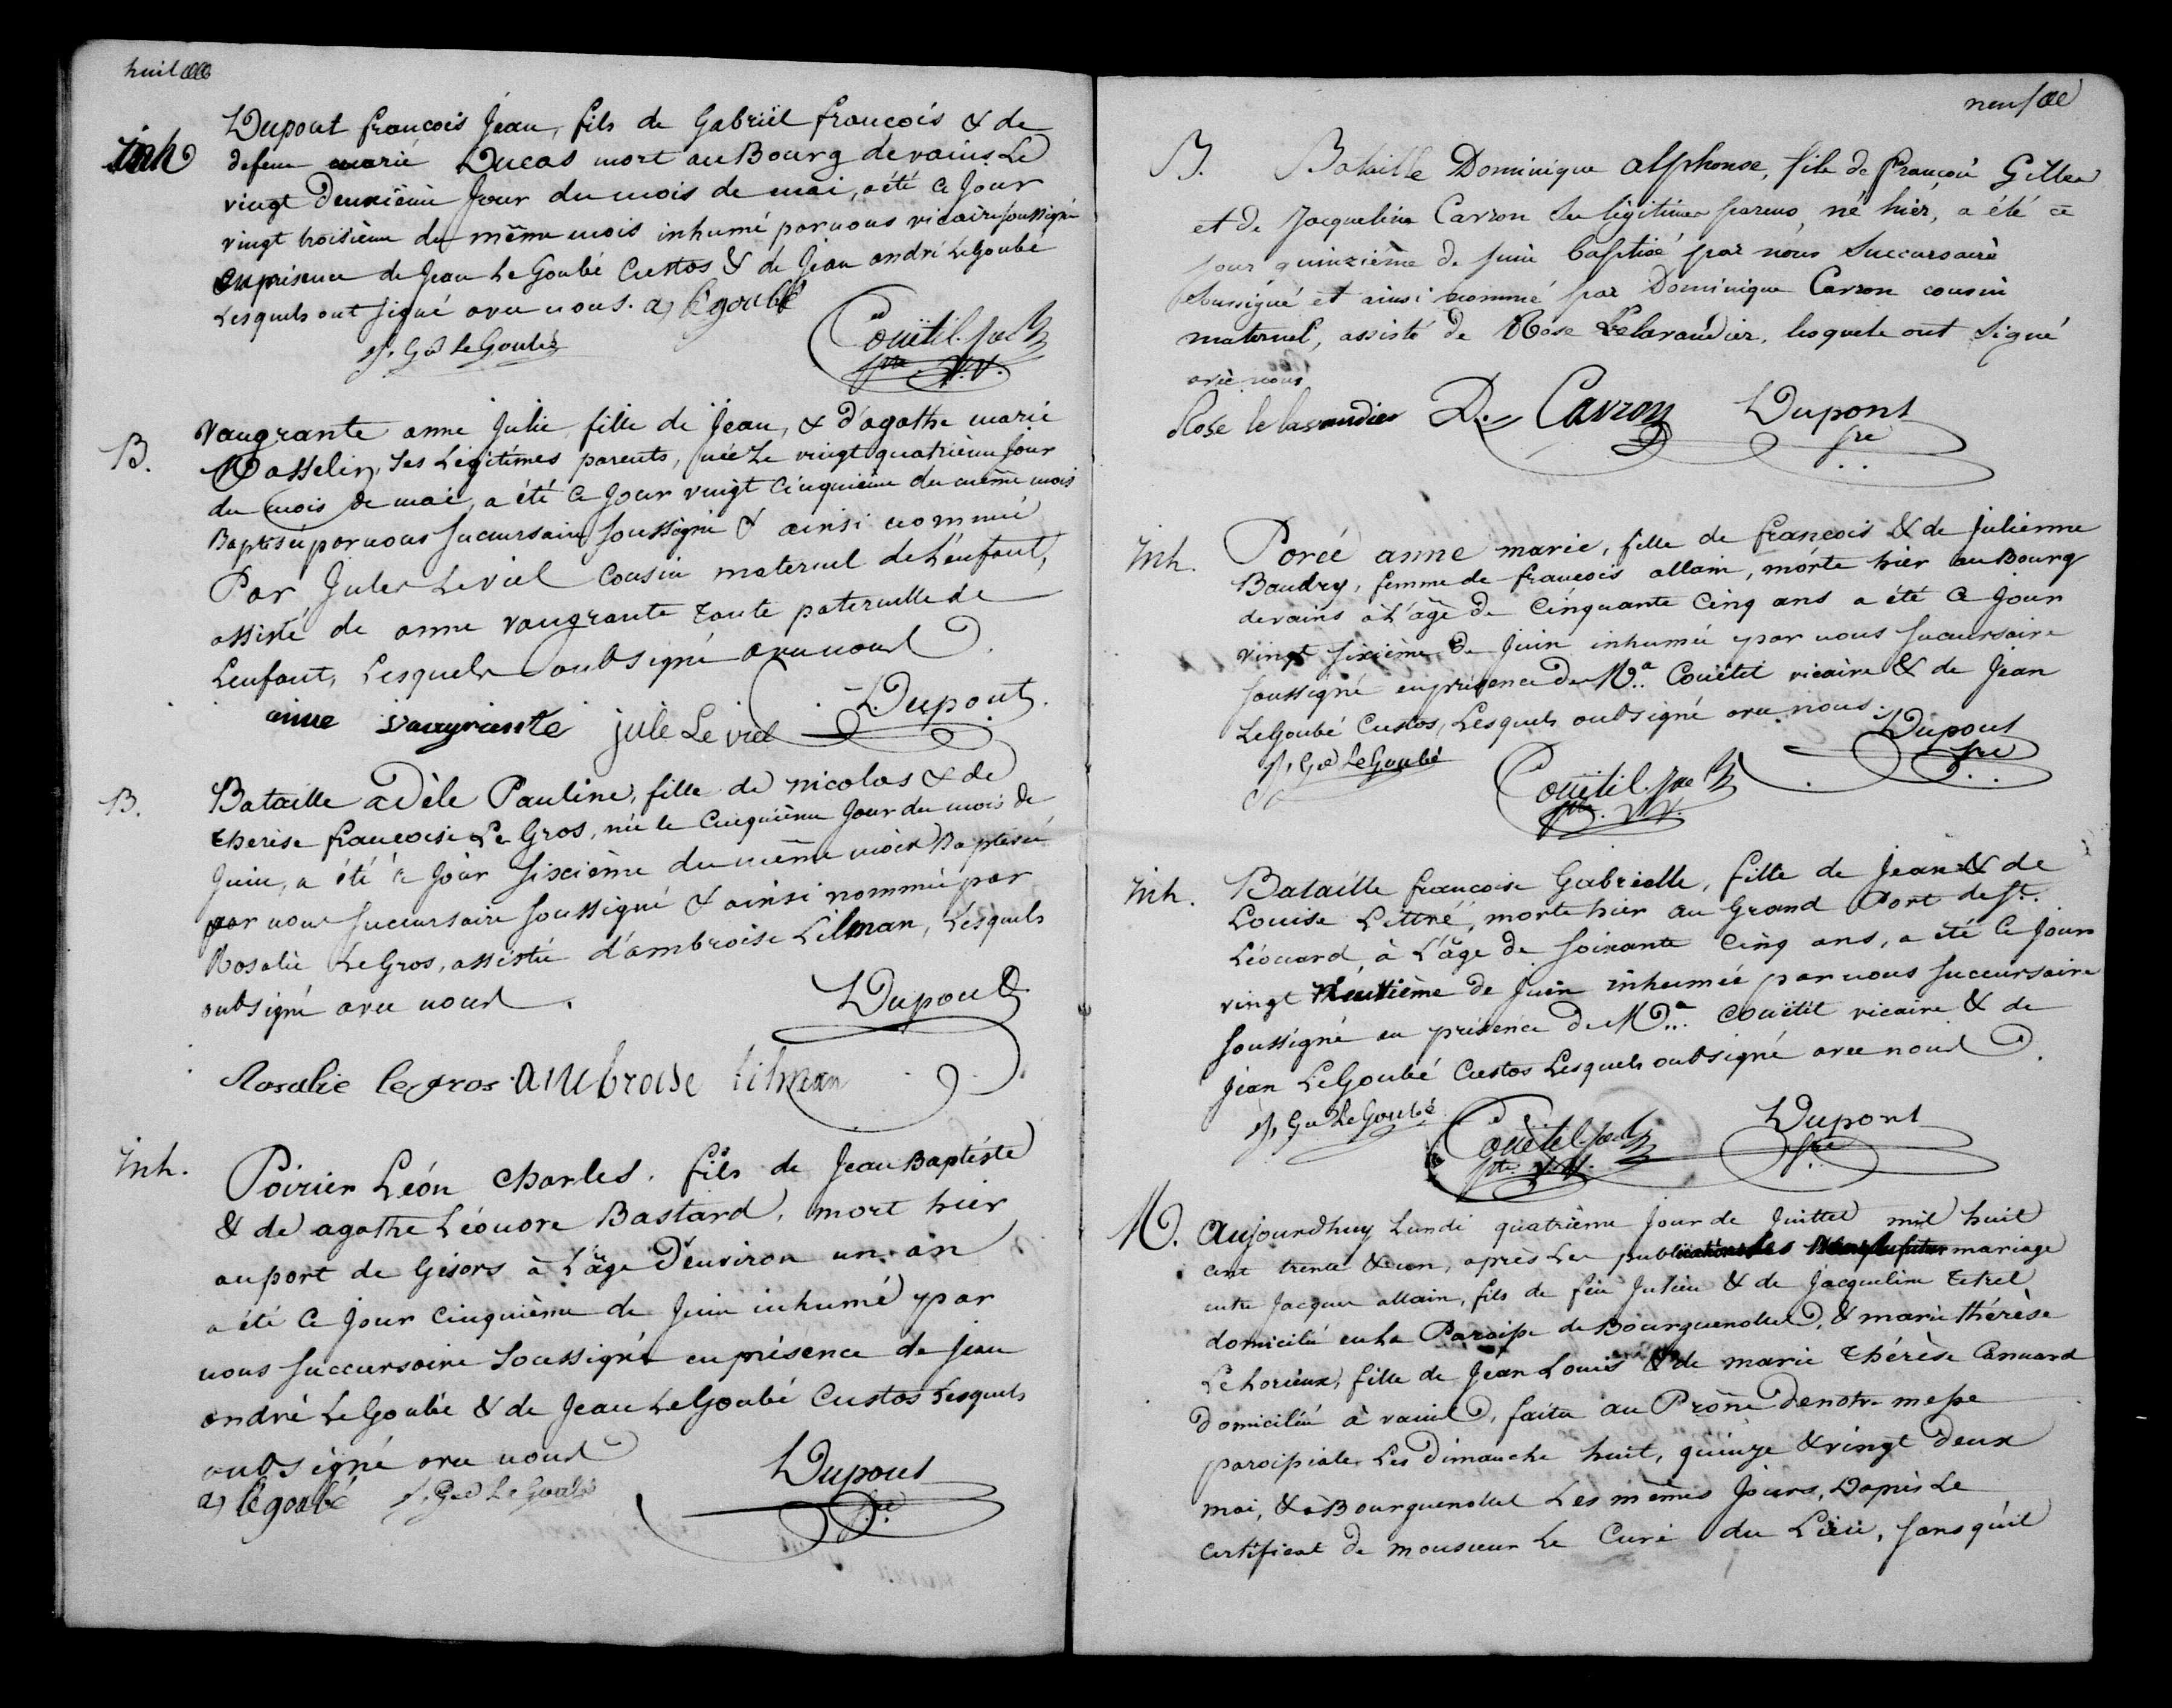 huit
Inh
Dupont françois Jean, fils de Gabriël françois & de
defeue marie Ducas mort au Bourg de vains Le
vingt Deuxième Jour du mois de mai, a été ce Jour
vingt troisième du même mois inhumé par nous vicaire soussigné
en présence de Jean Le Goubé Custos & de Jean andré LeGoubé
Lesquels ont signé avec nous. a, legoubé
J. Gd LeGoubé
Couëtil. Jac
ptre V.V.
B.
Vaugrante anne Julie fille de Jean, & d'agathe marie
Masselin, ses Légitimes parents, née Le vingt quatrième Jour
du mois de mai, a été ce Jour vingt Cinquième du même mois
Baptisée par nous succursaire soussigné & ainsi nommée
Par Jules Leviel Cousin maternel de L'enfant,
assisté de anne vaugrante tante paternelle de
Lenfant, Lesquels ont signé avec nous
anne vaugrante jule Le viel Dupont
B.
Bataille adèle Pauline, fille de nicolas & de
therèse françoise Le Gros, née le Cinquième Jour du mois de
Juin, a été ce Jour sixième du même mois Baptisée
par nous succursaire soussigné & ainsi nommée par
Rosalie LeGros, assistée d'ambroise Lilman, Lesquels
ont signé avec nous.
Dupont
Rosalie le gros ambroise lilman
Inh.
Poirier Léon charles, fils de Jean Baptiste
& de agathe Léonore Bastard, mort hier
au port de Gisors à L'âge D'environ un an
a été ce Jour cinquième de Juin inhumé par
nous succursaire soussigné en présence de Jean
andré LeGoubé & de Jean LeGoubé Custos Lesquels
ont signé avec nous
a, legoubé J. Gd LeGoubé Dupont
ptre
neuf
B.
Bataille Dominique Alphonse, fils de François Gilles
et de Jacqueline Carron ses légitimes parens, né hier, a été ce
jour quinzième de juin baptisé par nous Succursaire
Soussigné et ainsi nommé par Dominique Carron cousin
maternel, assisté de Rose Lelavandier, lesquels ont Signé
avec nous
Rose le lavandier D. Cavron Dupont
ptre
Inh.
Porée anne marie, fille de françois & de julienne
Baudry, femme de françois allain, morte hier au Bourg
de vains à L'âge de Cinquante Cinq ans a été ce Jour
vingt sixième de Juin inhumée par nous succursaire
soussigné en présence de Mr. Couëtil vicaire & de Jean
LeGoubé Custos, Lesquels ont signé avec nous.
J. Gd LeGoubé Couëtil. Jac Dupont
ptre V.V. ptre
Inh.
Bataille françoise Gabrielle, fille de Jean & de
Louise Littré, morte hier au Grand Port de St.
Léonard, à L'âge de soixante Cinq ans, a été ce Jour
vingt huitième de Juin inhumée par nous succursaire
soussigné en présence de Mr. Couëtil vicaire & de
Jean LeGoubé Custos Lesquels ont signé avec nous
J. Gd LeGoubé Couëtil Jac Dupont
ptre V.V. ptre
M.
Aujourdhuy Lundi quatrième Jour de Juillet mil huit
cent trente & un, après Les publications du futur mariage
entre Jacques allain, fils de feu Julien & de Jacqueline Tetrel
domicilié en La Paroisse de Bourguenolles, & marie thérèse
Le horieux, fille de Jean Louis & de marie thérèse Canuard
domiciliée à vains, faites au Prône de notre messe
paroissiale Les Dimanche huit, quinze & vingt deux
mai, & à Bourguenolles Les mêmes Jours, D'après Le
certificat de monsieur Le Curé du Lieu, sans qu'il